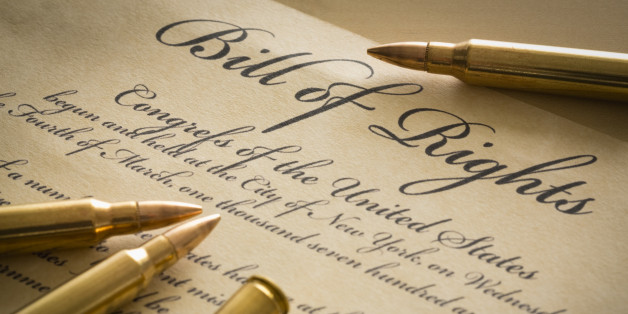 Bill of Rights
Congreſs of the United States
begun and held at the City of New York, on Wednesd
the Fourth of March, one thousand seven hundred a
of a num tates ha at the
ent mis
be